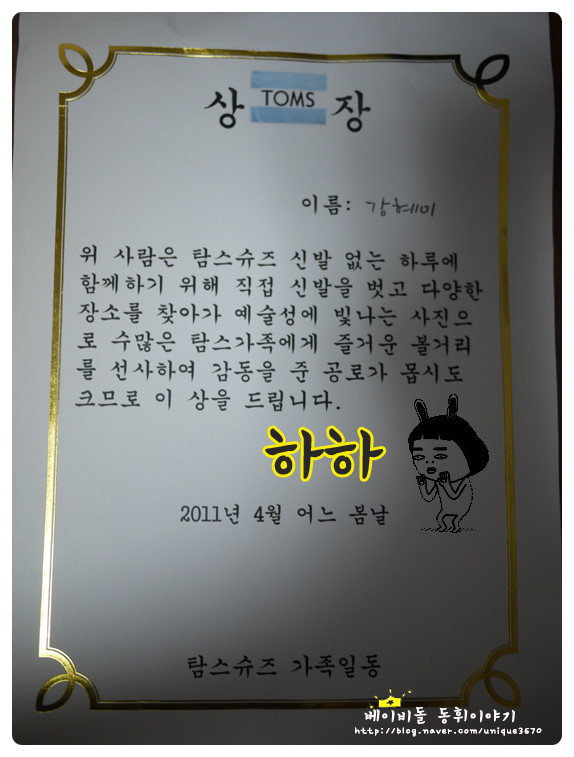 상 TOMS 장
이름: 강혜미
위 사람은 탐스슈즈 신발 없는 하루에
함께하기 위해 직접 신발을 벗고 다양한
장소를 찾아가 예술성에 빛나는 사진으
로 수많은 탐스가족에게 즐거운 볼거리
를 선사하여 감동을 준 공로가 몹시도
크므로 이 상을 드립니다.
하하
2011년 4월 어느 봄날
탐스슈즈 가족일동
베이비돌 동휘이야기
http://blog.naver.com/unique3670